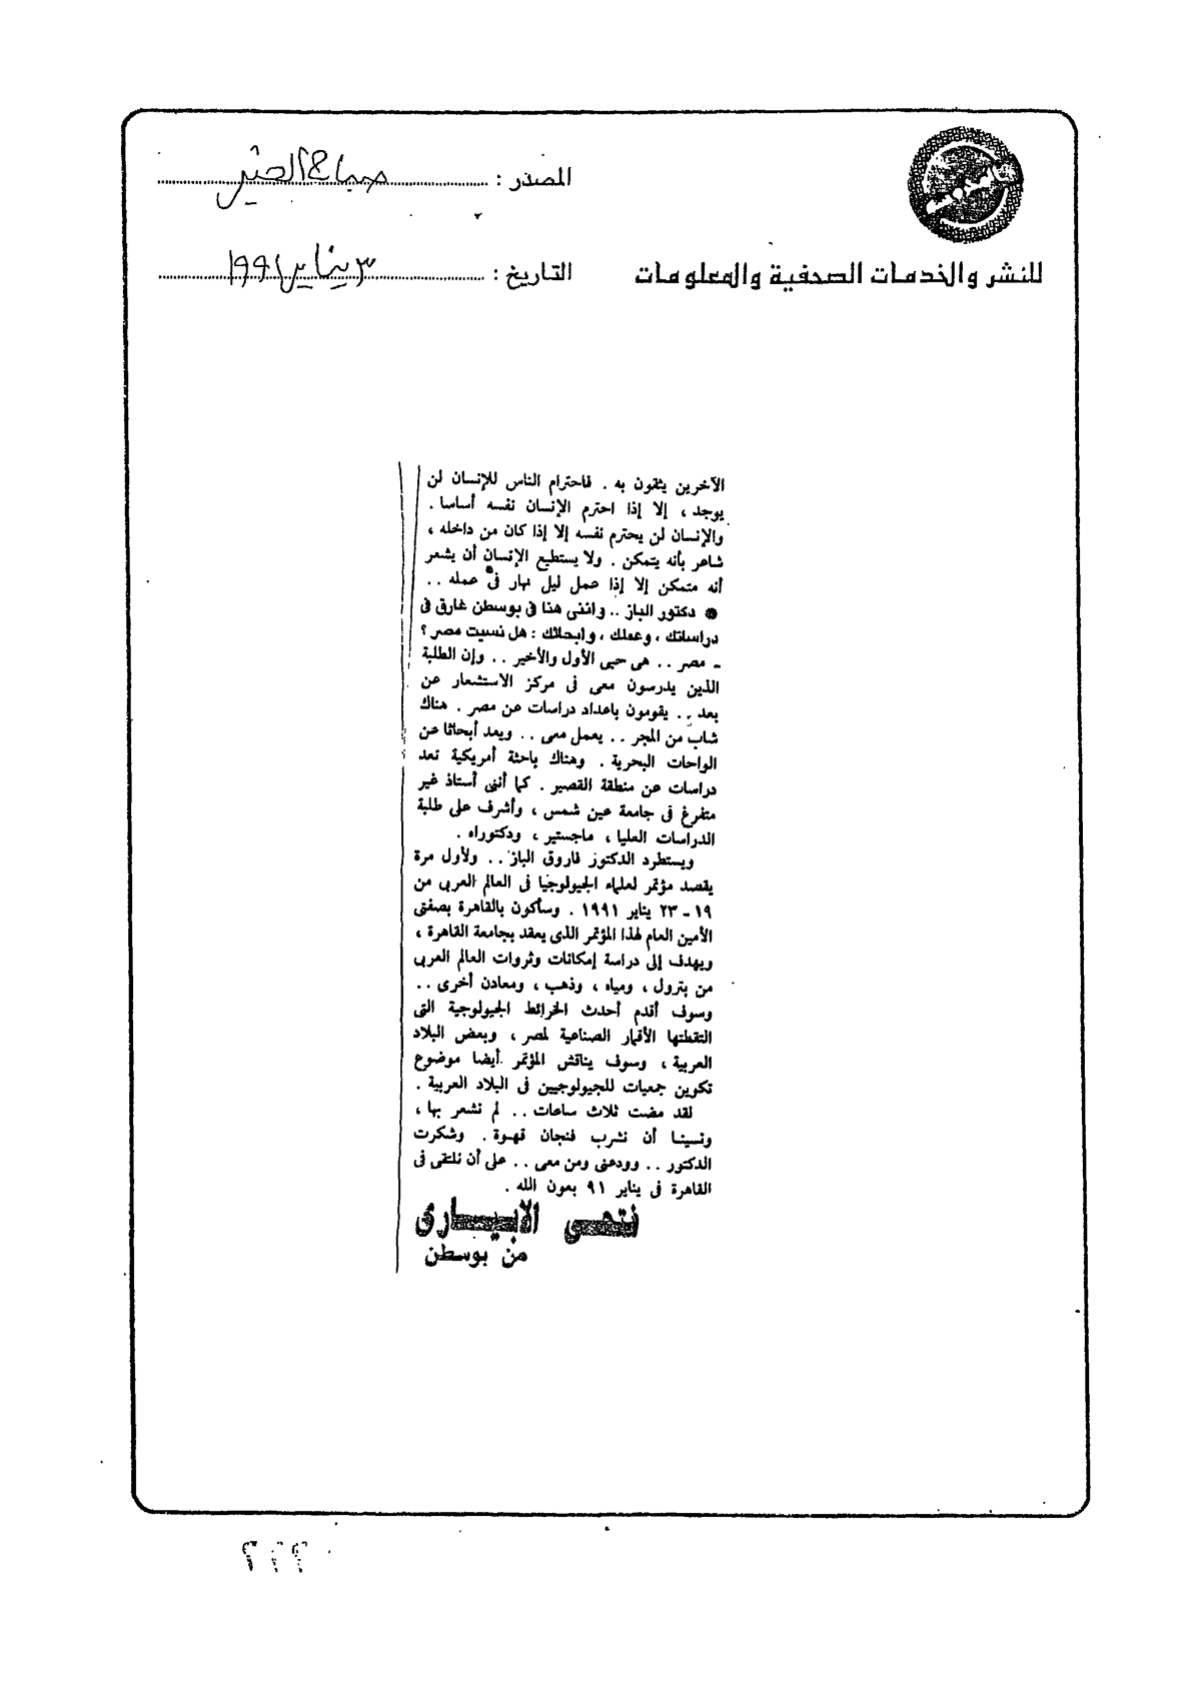 المصدر : صباح الخير
للنشر والخدمات الصحفية والمعلومات
التاريخ : ٣ يناير ١٩٩١
الآخرين يثقون به . فاحترام الناس للإنسان لن
يوجد ، إلا إذا احترم الإنسان نفسه أساسا .
والإنسان لن يحترم نفسه إلا إذا كان من داخله ،
شاعر بأنه يتمكن . ولا يستطيع الإنسان أن يشعر
أنه متمكن إلا إذا عمل ليل نهار فى عمله . .
● دكتور الباز . . وانثى هنا فى بوسطن غارق فى
دراساتك ، وعملك ، وابحاثك : هل نسيت مصر ؟
ـ مصر . . هى حبى الأول والأخير . . وإن الطلبة
الذين يدرسون معى فى مركز الاستشعار عن
بعد . . يقومون باعداد دراسات عن مصر . هناك
شاب من المجر . . يعمل معى . . ويعد أبحاثا عن
الواحات البحرية . وهناك باحثة أمريكية تعد
دراسات عن منطقة القصير . كما أننى أستاذ غير
متفرغ فى جامعة عين شمس ، وأشرف على طلبة
الدراسات العليا ، ماجستير ، ودكتوراه .
ويستطرد الدكتور فاروق الباز . . ولأول مرة
يقصد مؤتمر لعلماء الجيولوجيا فى العالم العربى من
١٩ - ٢٣ يناير ١٩٩١ . وسأكون بالقاهرة بصفتى
الأمين العام لهذا المؤتمر الذى يعقد بجامعة القاهرة ،
ويهدف إلى دراسة إمكانات وثروات العالم العربى
من بترول ، ومياه ، وذهب ، ومعادن أخرى . .
وسوف أقدم أحدث الخرائط الجيولوجية التى
التقطتها الأقمار الصناعية لمصر ، وبعض البلاد
العربية ، وسوف يناقش المؤتمر أيضا موضوع
تكوين جمعيات للجيولوجيين فى البلاد العربية .
لقد مضت ثلاث ساعات . . لم نشعر بها ،
ونسينا أن نشرب فنجان قهوة . وشكرت
الدكتور . . وودعنى ومن معى . . على أن نلتقى فى
القاهرة فى يناير ٩١ بعون الله .
فتحى الابيارى
من بوسطن